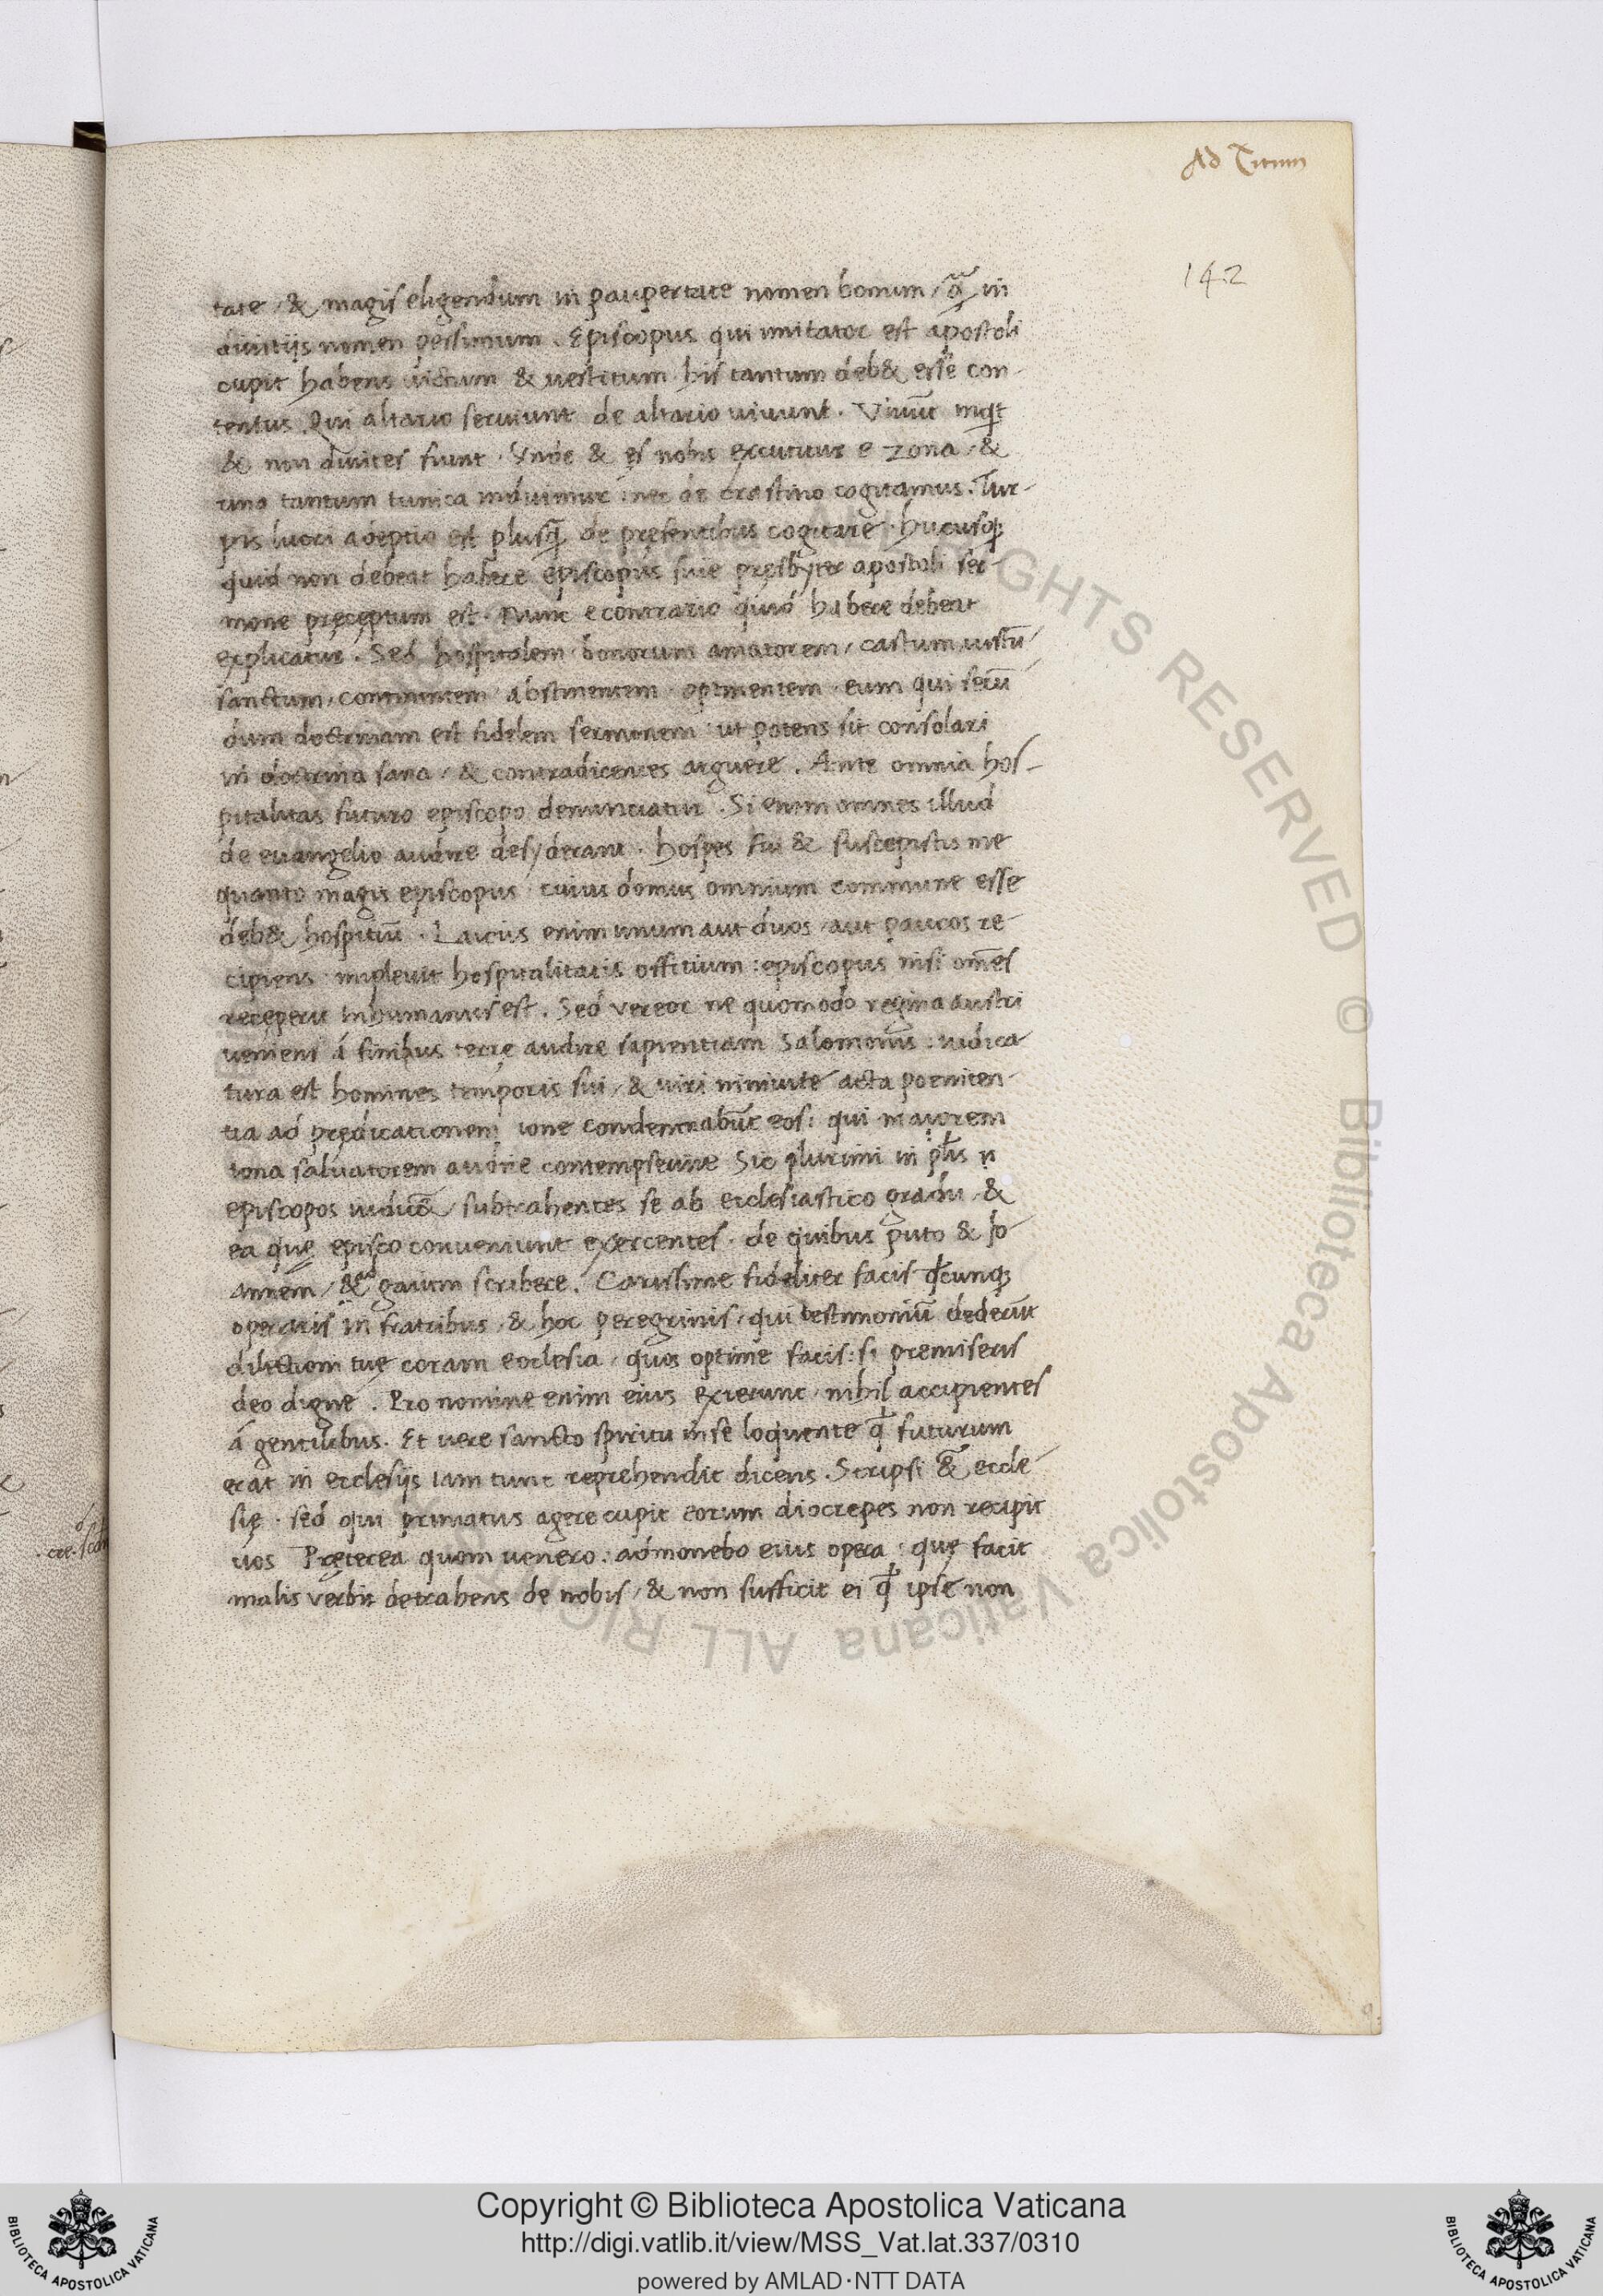 Ad Titum
142
tate / & magis eligendum in paupertate nomen bonum / q̄ in
divitijs nomen pessimum . Episcopus qui imitator est apostoli
cupit habens victum & vestitum his tantum deb& esse con-
tentus . Qui altario serviunt de altario vivunt . Vivūt inqt
& non divites fiunt . Vnde & es nobis excutitur e zona / &
una tantum tunica induimur : nec de crastino cogitamus . Tur-
pis lucri adeptio est plusq̄ de presentibus cogitare . hucusq;
quid non debeat habere episcopus sive pręsbyter apostoli ser-
mone pręceptum est . Nunc e contrario quid habere debeat
explicatur . Sed hospitalem bonorum amatorem / castum iustū /
sanctum / continentem abstinentem optinentem eum qui secū
dum doctrinam est fidelem sermonem ut potens sit consolari
in doctrina sana / & contradicentes arguere . Ante omnia hos-
pitalitas futuro episcopo denunciatur . Si enim omnes illud
de euangelio audire desyderant . hospes fui & suscepistis me
quanto magis episcopus cuius domus omnium commune esse
deb& hospitiū . Laicus enim unum aut duos aut paucos re-
cipiens implevit hospitalitatis offitium : episcopus nisi om̄es
receperit inhumanus est . Sed vereor ne quomodo regina austri
veniens á finibus terrę audire sapientiam Salomonis : iudica
tura est homines temporis sui / & viri ninivite acta poeniten-
tia ad prędicationem ione condemnabūt eos : qui maiorem
iona salvatorem audire contempserunt Sic plurimi in plis n
episcopos / subtrahentes se ab ecclesiastico gradu / &
ea quę episco conveniunt exercentes . de quibus puto & Io
annem / & gaium scribere . Carissime fideliter facis qdcunq;
operaris in fratribus / & hoc peregrinis / qui testimoniū dederūt
dilectioni tuę coram ecclesia / quos optime facis : si premiseris
deo digne . Pro nomine enim eius exierunt / nihil accipientes
á gentilibus . Et vere sancto spiritu in se loquente qd futurum
erat in ecclesijs iam tunc reprehendit dicens . Scripsi & eccle-
się . sed qui primatus agere cupit eorum diocrepes non recipit
vos Pręterea quom venero : admonebo eius opera : quę facit
malis verbis detrahens de nobis / & non sufficit ei qd ipse non
Copyright © Biblioteca Apostolica Vaticana
http://digi.vatlib.it/view/MSS_Vat.lat.337/0310
powered by AMLAD·NTT DATA